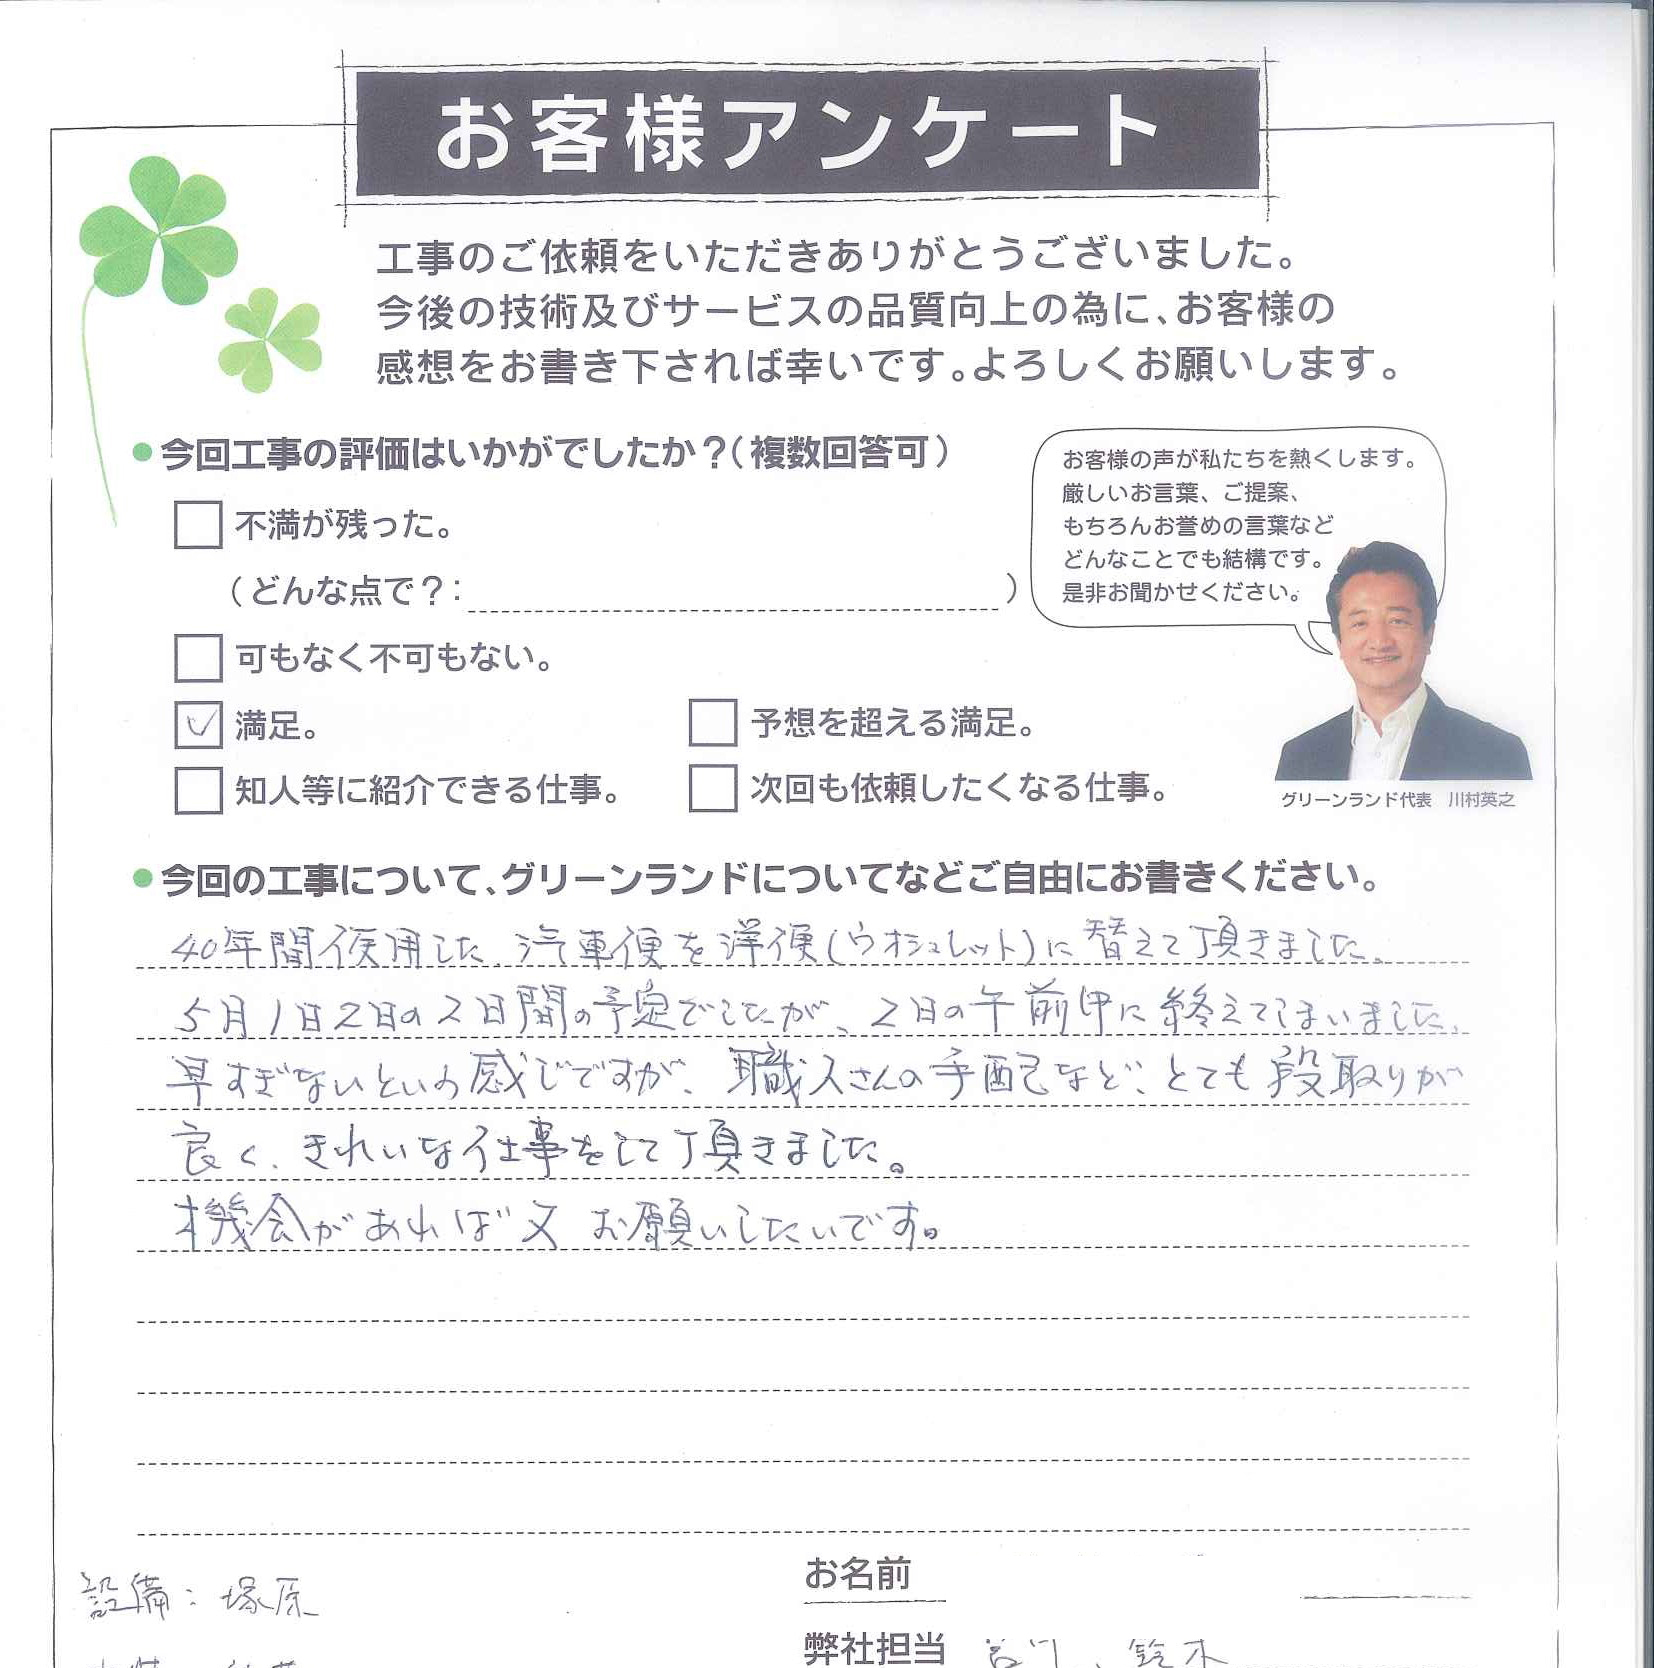 お客様アンケート
工事のご依頼をいただきありがとうございました。
今後の技術及びサービスの品質向上の為に、お客様の
感想をお書き下されば幸いです。よろしくお願いします。
●今回工事の評価はいかがでしたか？（複数回答可）
不満が残った。
（どんな点で？：　）
可もなく不可もない。
満足。
予想を超える満足。
知人等に紹介できる仕事。
次回も依頼したくなる仕事。
お客様の声が私たちを熱くします。
厳しいお言葉、ご提案、
もちろんお誉めの言葉など
どんなことでも結構です。
是非お聞かせください。
グリーンランド代表　川村英之
●今回の工事について、グリーンランドについてなどご自由にお書きください。
40年間使用した、汽車便を洋便(ウオシュレット)に替えて頂きました。
5月1日2日の2日間の予定でしたが、2日の午前中に終えてしまいました。
早すぎないという感じですが、職人さんの手配など、とても段取りが
良く、きれいな仕事をして頂きました。
機会があれば又お願いしたいです。
設備：塚原
お名前
弊社担当　鈴木